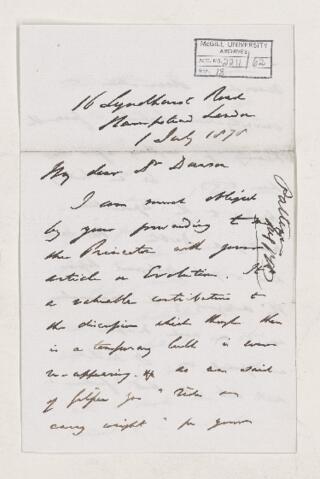 McGILL UNIVERSITY
ARCHIVES
ACC. NO. 2211/62
REF. 18
16 Lyndhurst Road
Hampstead London
1 July 1878
My dear Dr Dawson
I am much obliged
by your forwarding to me
the Princeton with your
article on Evolution. It
a valuable contribution to
the discussion which though there
is a temporary lull is ever
re-appearing. as was said
of "rides on
every" for your